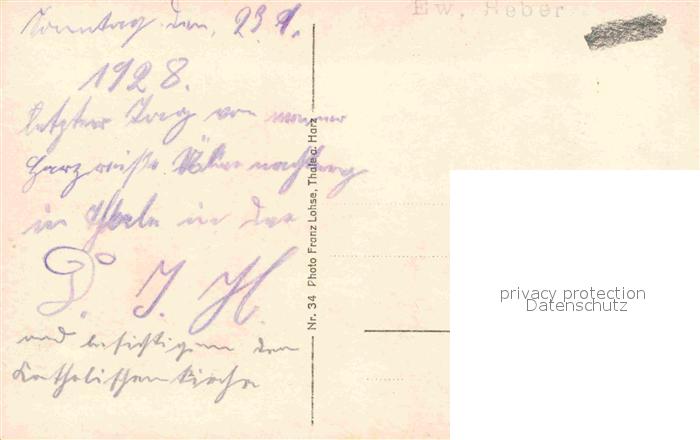 Sonntag den, 23.9.
1928.
letzter Tag von meiner
Harzreise.
in Thale in der
D. J. H.
und besichtigen den
Katholischen Kirche
Nr. 34 Photo Franz Lohse, Thale a. Harz
Ew. Reber
privacy protection
Datenschutz